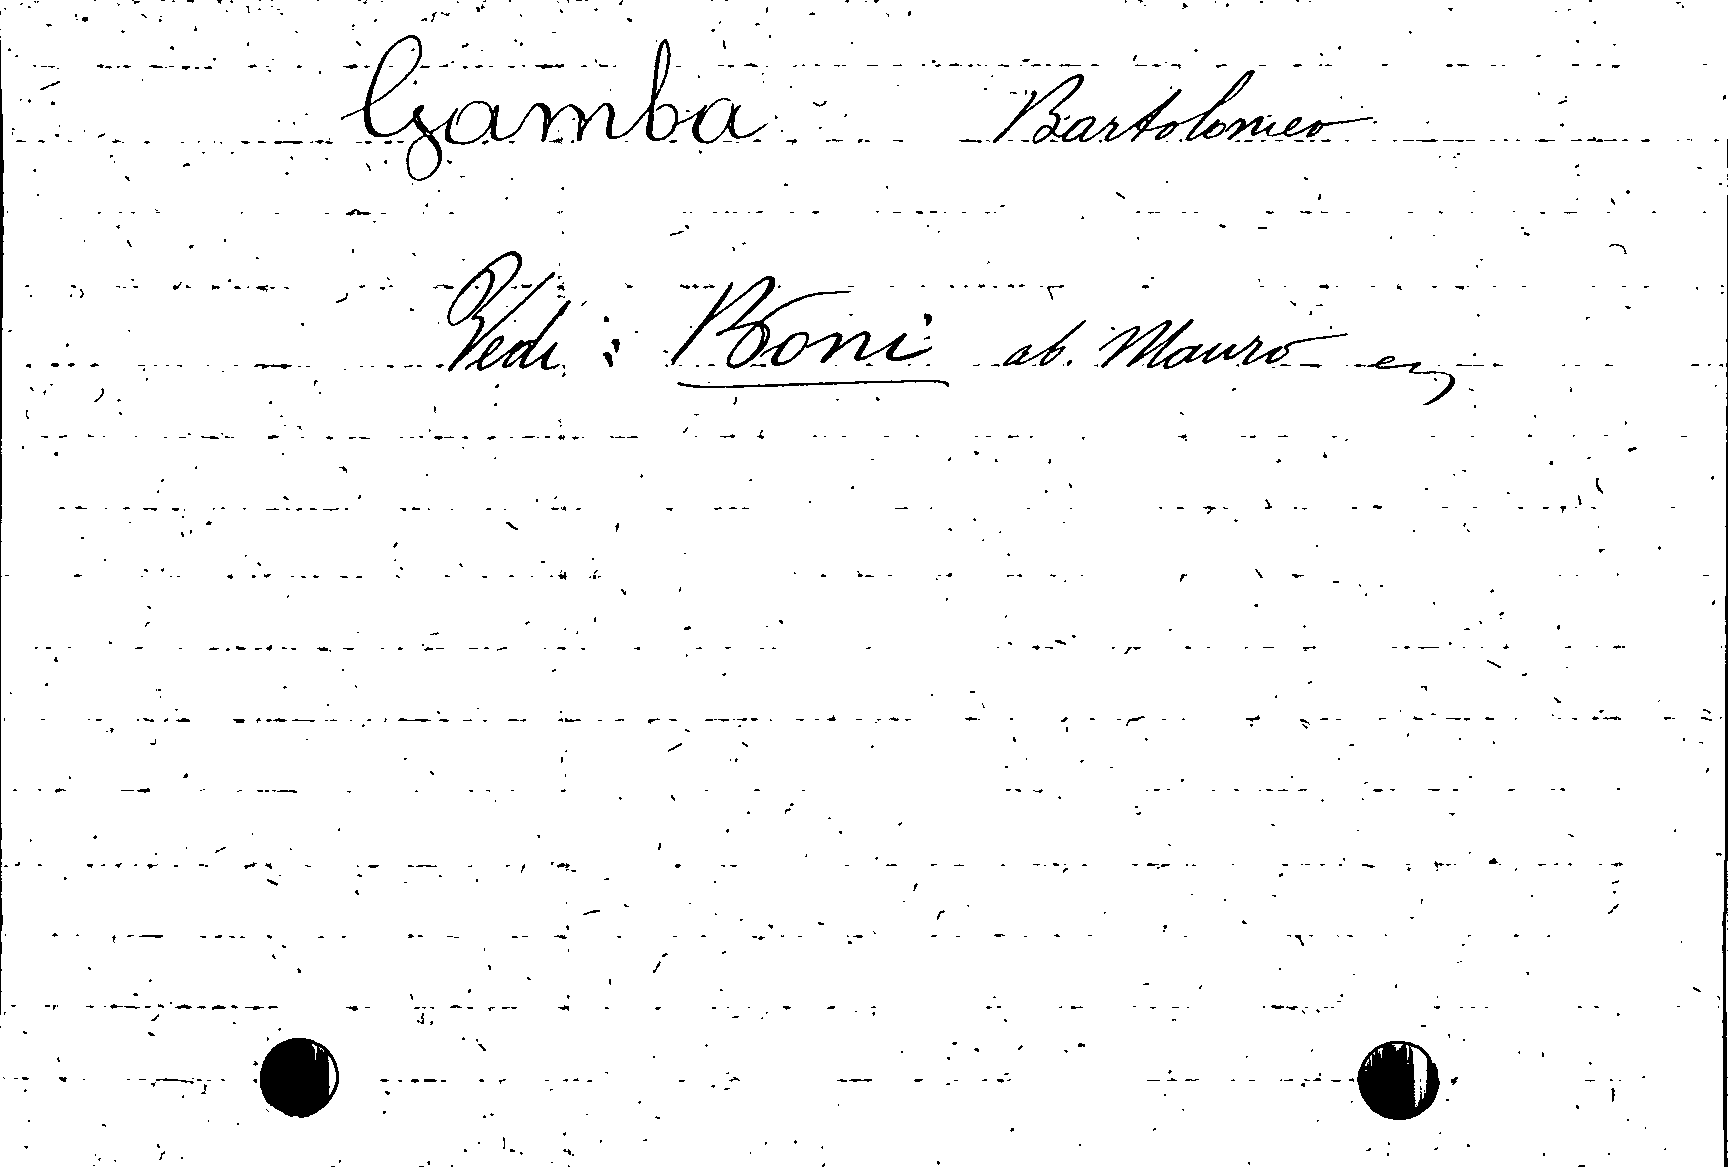 Gamba Bartolomeo
Vedi: Boni ab. Mauro